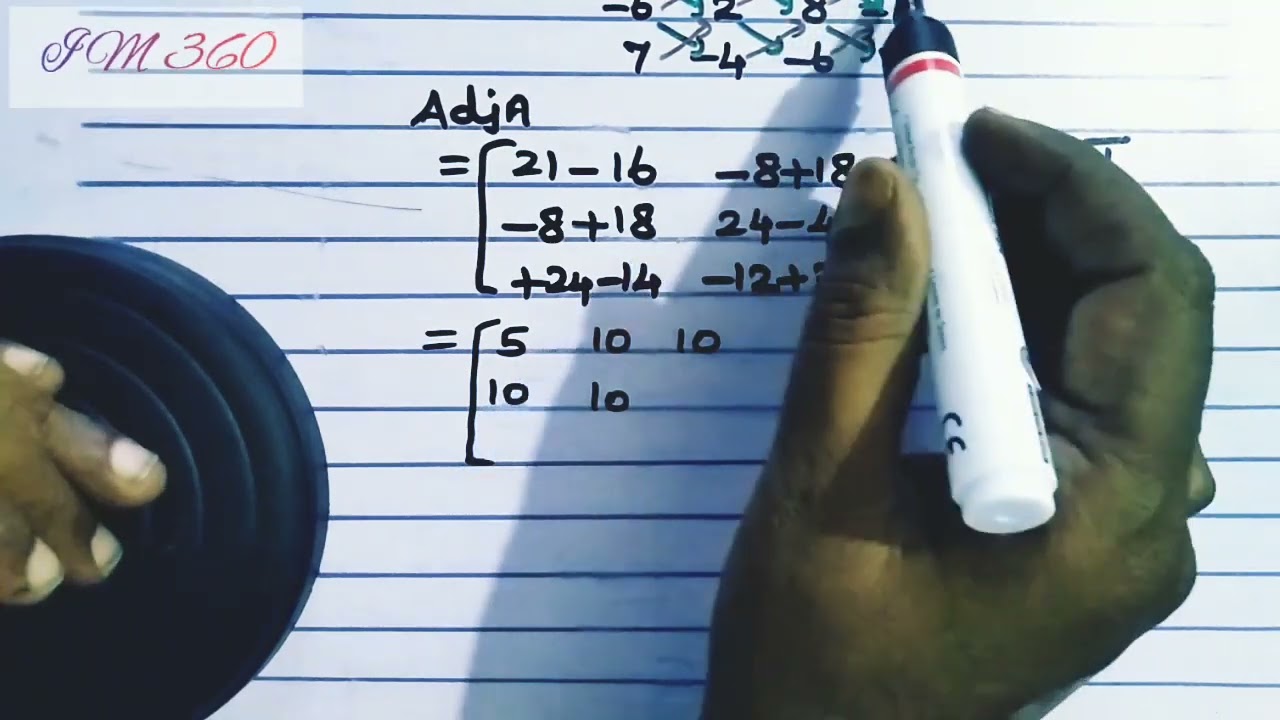 JM 360
-6 2 8
7 -4 -6
AdjA
= [ 21 - 16 -8+18
-8 + 18 24-4
+24-14 -12+
= [ 5 10 10
10 10
CE